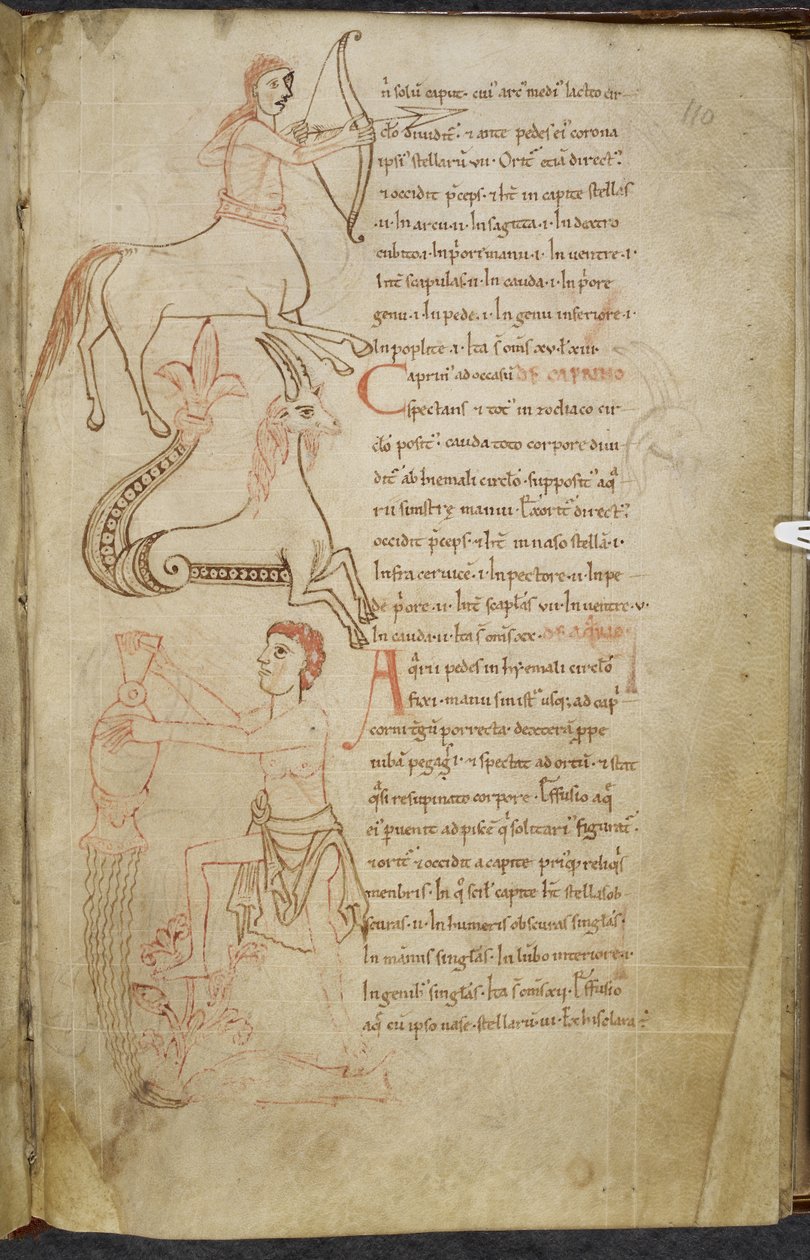 n̄ solū caput. cui᾽ arc᾽ medi᾽ lacteo cir
clo diuidit᾽. ⁊ ante pedes ei᾽ corona
ipsi᾽ stellarū vii. Orit᾽ etiā direct᾽.
⁊ occidit p̄ceps. ⁊ ht̄ in capite stellas
.ii. In arcu .ii. In sagitta .i. In dextro
cubito .i. In p̄ori manu .i. In uentre .i.
Int̄ scapulas .ii. In cauda .i. In p̄ore
genu .i. In pede .i. In genu inferiore .i.
In poplite .i. Ita s̄ om̄s xv. l᾽ xiii.
Caprin᾽ ad occasū DE CAPRINO
spectans ⁊ tot᾽ in zodiaco cir
clo posit᾽. cauda toto corpore diui
dit᾽ ab hiemali circlo. supposit᾽ aq̄
rii sinistrę manui. Exorit᾽ direct᾽.
occidit p̄ceps. ⁊ ht̄ in naso stellā .i.
Infra ceruicē .i. In pectore .ii. In pe
de p̄ore .ii. Int̄ scaplas vii. In uentre .v.
In cauda .ii. Ita s̄ om̄s xx. DE AQ̄RIO
Aq̄rii pedes in hyemali circlo
fixi. manu sinist᾽ usq; ad cap᾽
corni porrecta. dextera p̄pe
iubā pegasi. ⁊ spectat ad ortū. ⁊ stat
q̄si resupinato corpore. Effusio aq̄
ei᾽ p̄uenit ad piscē q᾽ solitari᾽ figurat᾽.
⁊ orit᾽ ⁊ occidit a capite pri᾽q̄ reliq᾽s
menbris. In q᾽ scil᾽ capite ht̄ stellas ob
scuras .ii. In humeris obscuras singlas.
In manus singlas. In lūbo interiore .i.
In genib᾽ singlas. Ita s̄ om̄s xii. Effusio
aq̄ cū ipso uase. stellarū
110